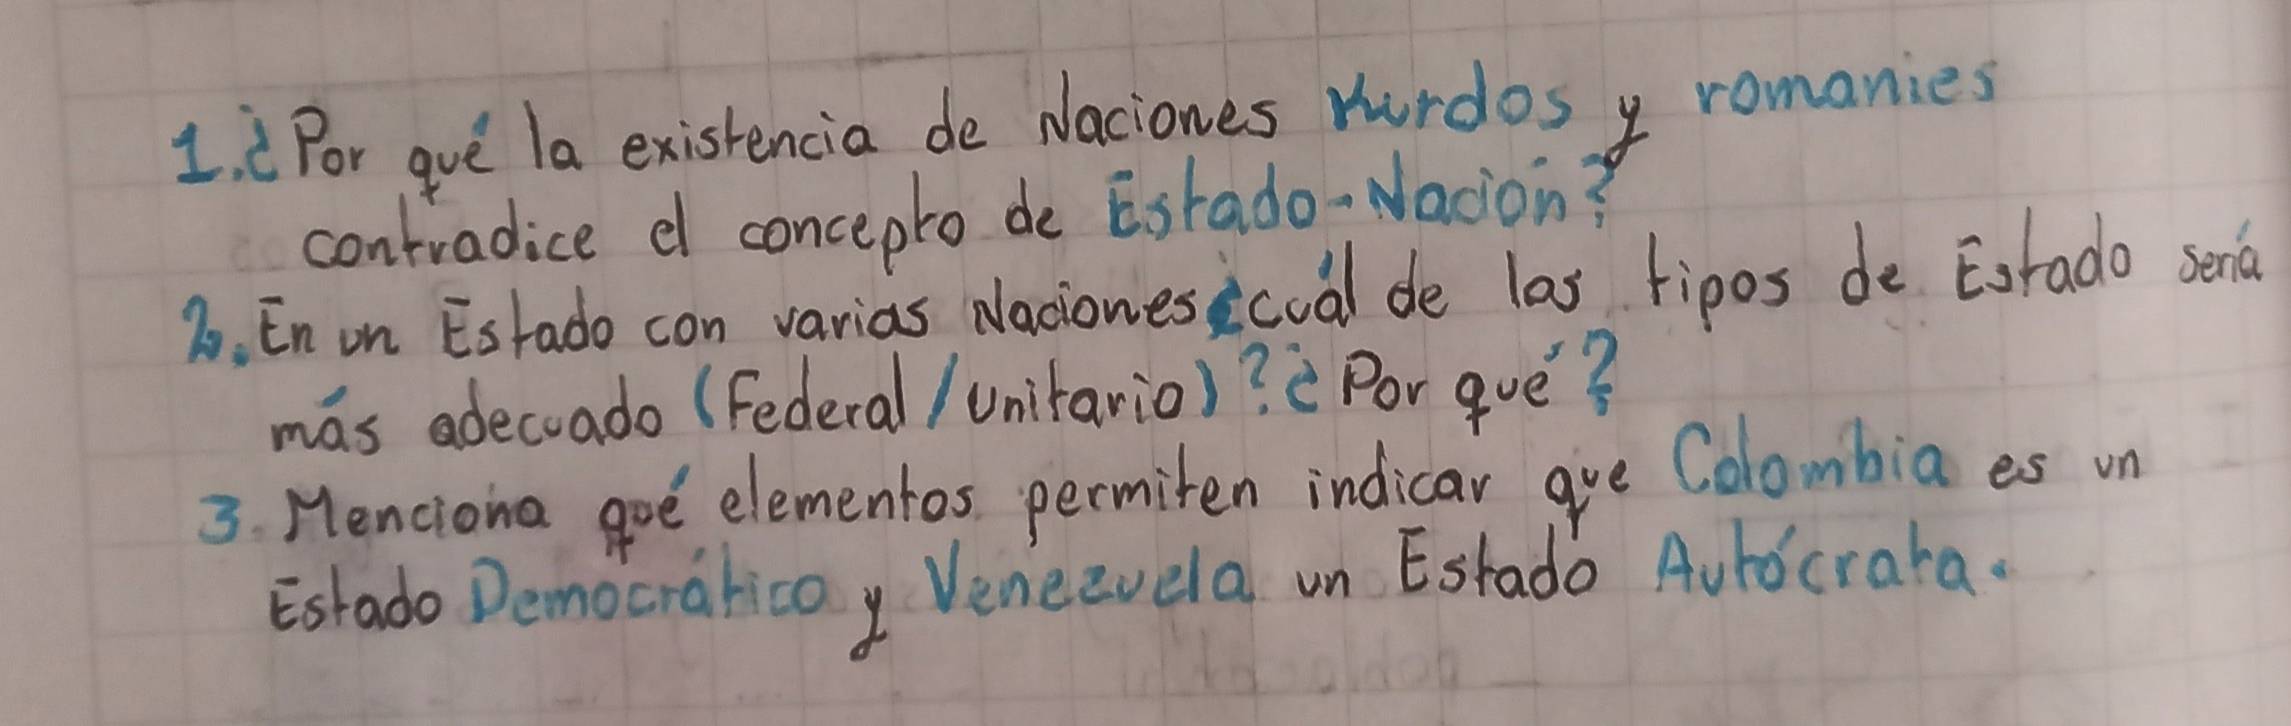 1. ¿Por qué la existencia de Naciones Kurdos y romanies
contradice el concepto de Estado-Nación?
2. En un Estado con varias Naciones ¿cuál de las tipos de Estado sería
más adecuado (Federal/unitario)? ¿Por qué?
3. Menciona qué elementos permiten indicar que Colombia es un
Estado Democrático y Venezuela un Estado Autócrata.